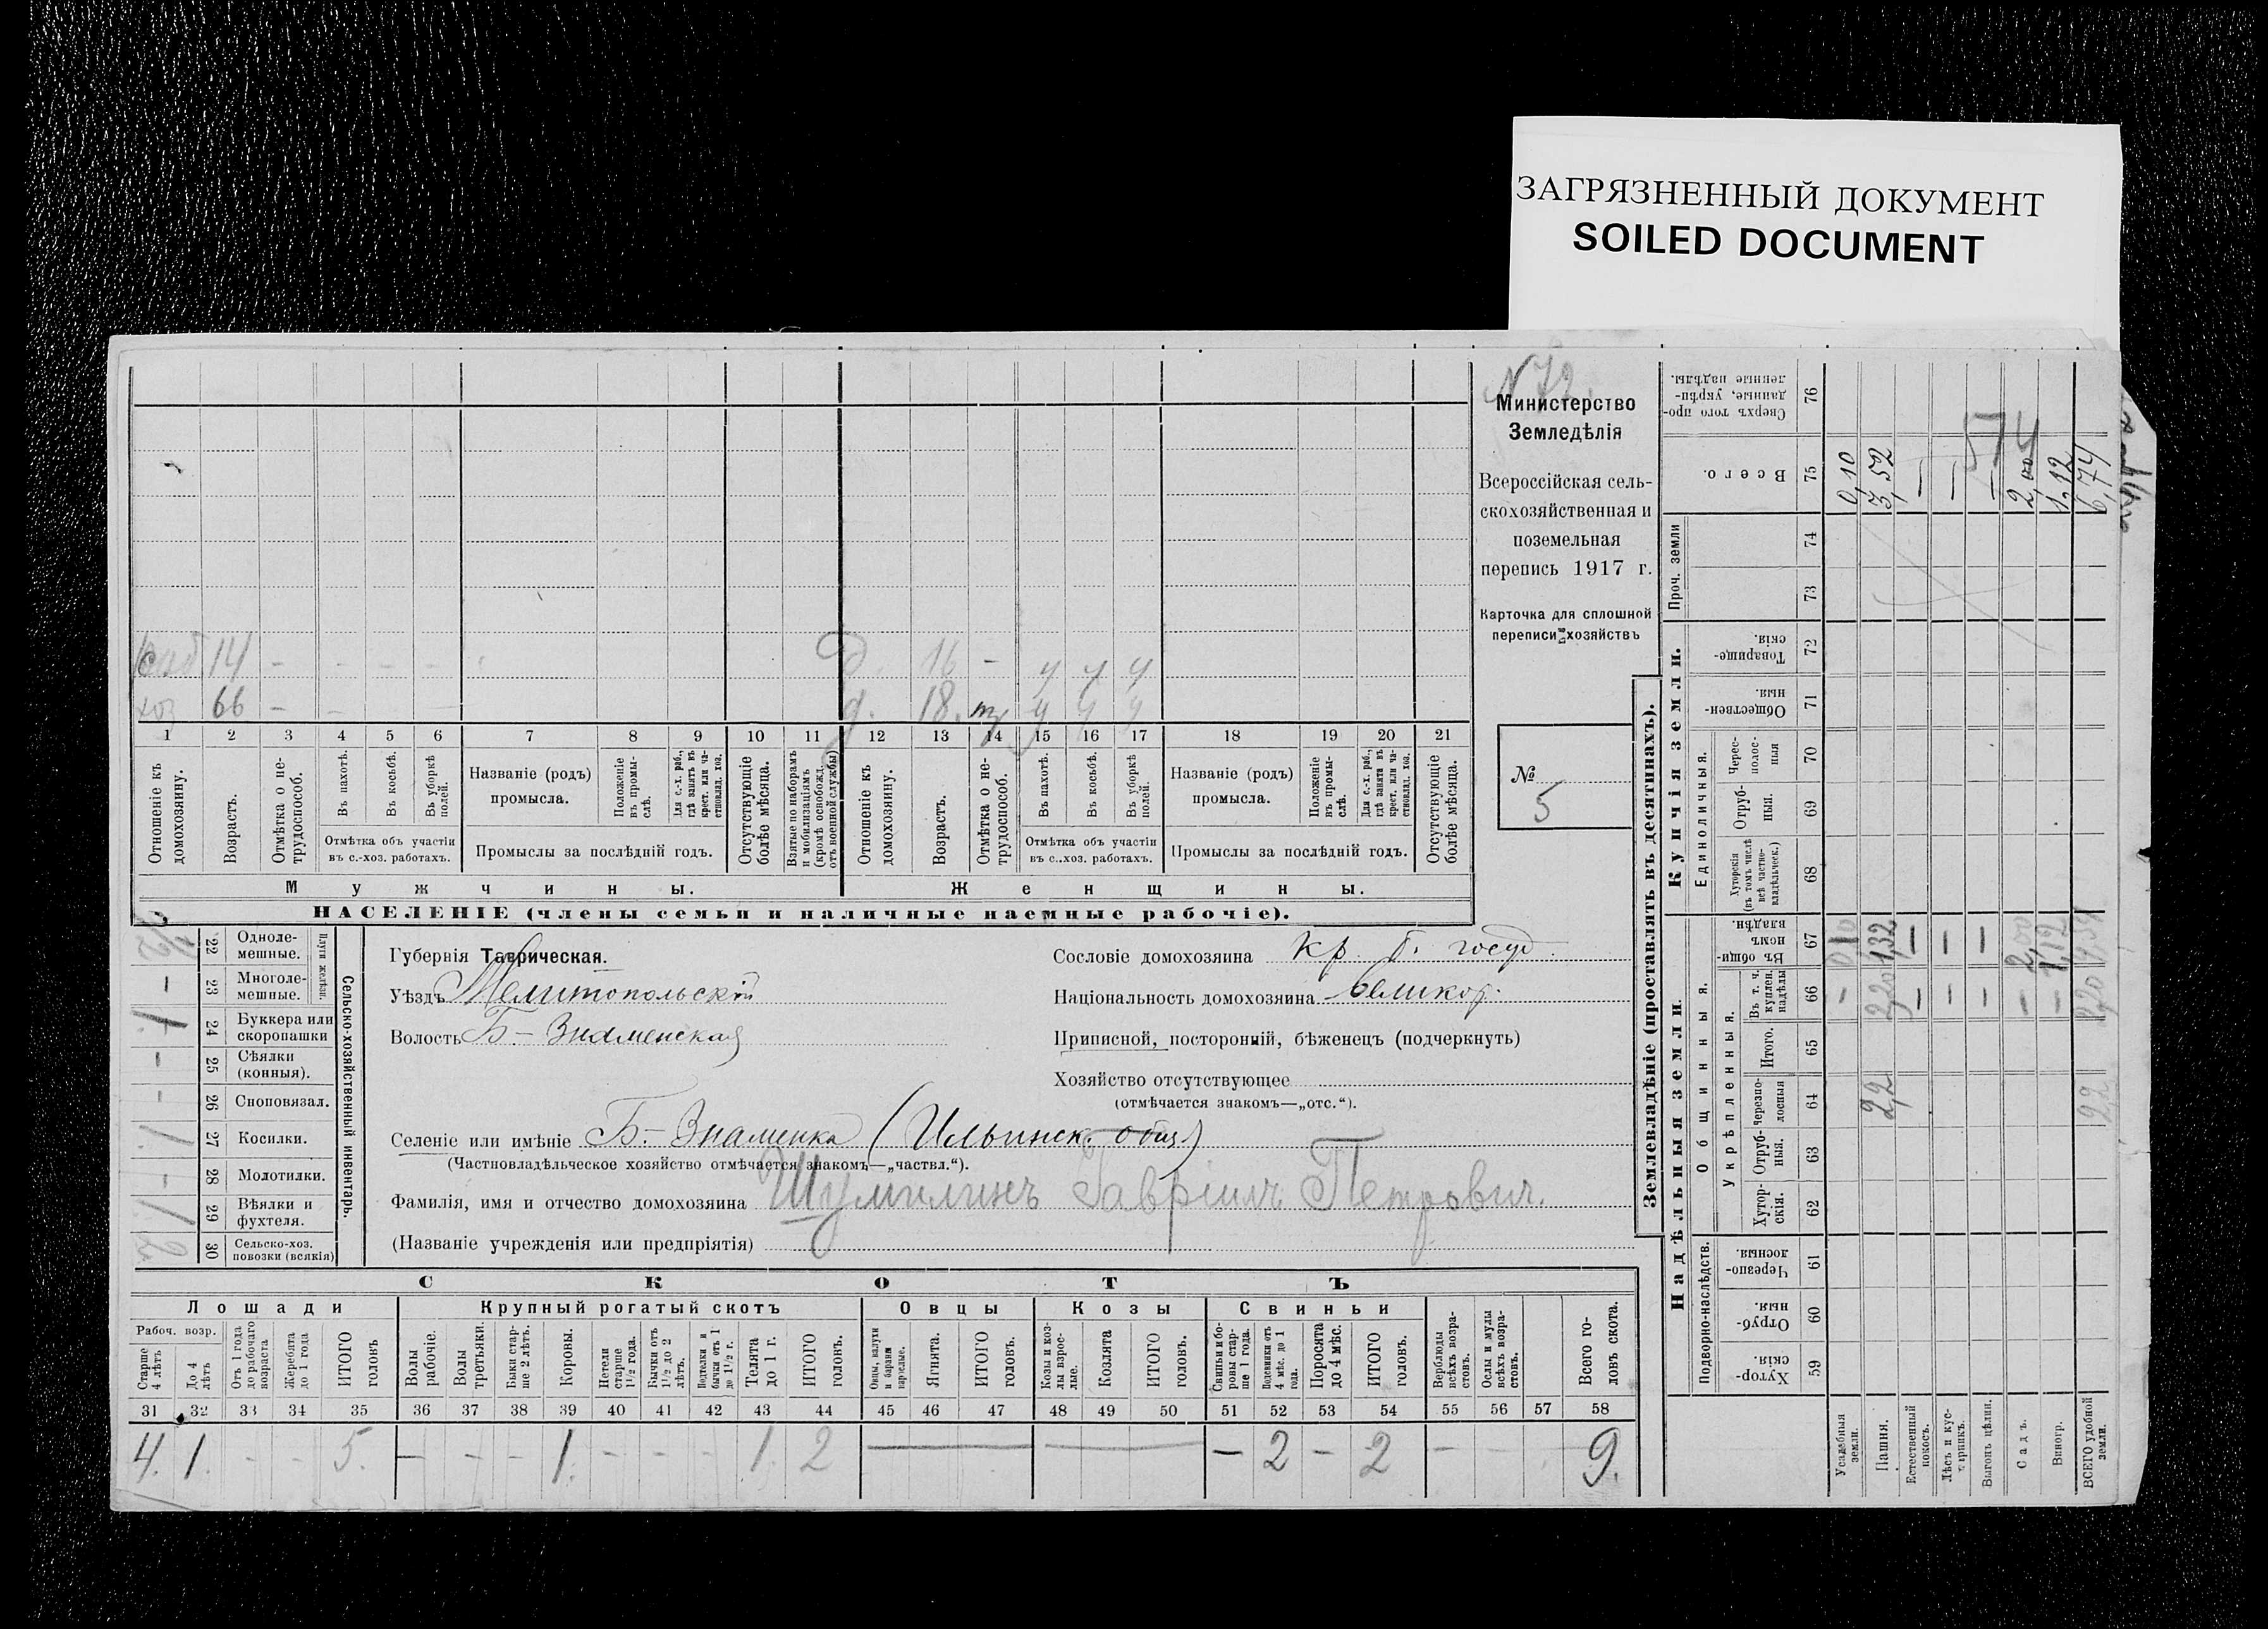 ЗАГРЯЗНЕННЫЙ ДОКУМЕНТ
SOILED DOCUMENT
N 72.
Министерство
Земледѣлія
Всероссійская сель-
скохозяйственная и
поземельная
перепись 1917 г.
Карточка для сплошной
переписи хозяйствъ
№
5
14 – – – – Д. 16 – у у у
хоз 66 – – д. 18. у у у
1 2 3 4 5 6 7 8 9 10 11 12 13 14 15 16 17 18 19 20 21
Отношеніе къ домохозяину.
Возрастъ.
Отмѣтка о не-трудоспособ.
Въ пахотѣ.
Въ косьбѣ.
Въ уборкѣ полей.
Отмѣтка объ участіи
въ с.-хоз. работахъ.
Названіе (родъ)
промысла.
Положеніе въ промы-слѣ.
Для с.-х. раб., гдѣ занятъ въ крест. или ча-стновлад. хоз.
Промыслы за послѣдній годъ.
Отсутствующіе болѣе мѣсяца.
Взятые по наборамъ и мобилизаціямъ (кромѣ освобожд. отъ военной службы)
Отношеніе къ домохозяину.
Возрастъ.
Отмѣтка о не-трудоспособ.
Въ пахотѣ.
Въ косьбѣ.
Въ уборкѣ полей.
Отмѣтка объ участіи
въ с.-хоз. работахъ.
Названіе (родъ)
промысла.
Положеніе въ промы-слѣ.
Для с.-х. раб., гдѣ занята въ крест. или ча-стновлад. хоз.
Промыслы за послѣдній годъ.
Отсутствующіе болѣе мѣсяца.
Мужчины.
Женщины.
НАСЕЛЕНІЕ (члены семьи и наличные наемные рабочіе).
Сельско-хозяйственный инвентарь.
Плуги желѣзн.
22 Одноле-мешные.
– 23 Многоле-мешные.
1 24 Буккера или скоропашки
– 25 Сѣялки (конныя).
– 26 Сноповязал.
1 27 Косилки.
– 28 Молотилки.
1 29 Вѣялки и фухтеля.
2 30 Сельско-хоз. повозки (всякія)
Губернія Таврическая.
Уѣздъ Мелитопольскій
Волость Б-Знаменская
Сословіе домохозяина Кр. б. госуд.
Національность домохозяина великор.
Приписной, посторонній, бѣженецъ (подчеркнуть)
Хозяйство отсутствующее
(отмѣчается знакомъ—„отс.“).
Селеніе или имѣніе Б.-Знаменка (Ильинск. общ)
(Частновладѣльческое хозяйство отмѣчается знакомъ—„частвл.“).
Фамилія, имя и отчество домохозяина Шумилинъ Гавріилъ Петрович.
(Названіе учрежденія или предпріятія)
СКОТЪ
Лошади
Крупный рогатый скотъ
Овцы
Козы
Свиньи
Рабоч. возр.
Старше 4 лѣтъ
До 4 лѣтъ
Отъ 1 года до рабочаго возраста
Жеребята до 1 года
ИТОГО головъ
Волы рабочіе.
Волы третьяки.
Быки стар-ше 2 лѣтъ.
Коровы.
Нетели старше 1½ года.
Бычки отъ 1½ до 2 лѣтъ.
Подтелки и бычки отъ 1 до 1½ г.
Телята до 1 г.
ИТОГО головъ.
Овцы, валухи и бараны взрослые.
Ягнята.
ИТОГО головъ.
Козы и коз-лы взрос-лые.
Козлята
ИТОГО головъ.
Свиньи и бо-ровы стар-ше 1 года.
Подсвинки отъ 4 мѣс. до 1 года.
Поросята до 4 мѣс.
ИТОГО головъ.
Верблюды всѣхъ возра-стовъ.
Ослы и мулы всѣхъ возра-стовъ.
Всего го-ловъ скота.
31 32 33 34 35 36 37 38 39 40 41 42 43 44 45 46 47 48 49 50 51 52 53 54 55 56 57 58
4. 1. – – 5. – – – 1. – – – 1. 2 – – – 2 – 2 – – 9.
Землевладѣніе (проставлять въ десятинахъ).
Надѣльныя земли.
Купчія земли.
Проч. земли
Подворно-наслѣдств.
Общинныя.
Укрѣпленныя.
Единоличныя.
Хутор-скія. 59
Отруб-ныя. 60
Черезпо-лосныя. 61
Хутор-скія. 62
Отруб-ныя. 63
Черезпо-лосныя 64
Итого. 65
Въ т. ч. куплен. надѣлы 66
Въ общи-номъ владѣн. 67
Хуторскія (въ томъ числѣ всѣ частно-владѣльческ.) 68
Отруб-ныя. 69
Черес-полос-ныя 70
Обществен-ныя. 71
Товарище-скія. 72
73
74
Всего. 75
Сверхъ того про-данные, укрѣп-ленные надѣлы. 76
Усадебныя земли. – 0,10
Пашня. 2,2 2,20 1,32 3,52
Естественный покосъ. – – –
Лѣсъ и кус-тарникъ. – – –
Выгонъ цѣлин. – – –
Садъ. – 2,00 2,00
Виногр. – 1,12 1,12
ВСЕГО удобной земли. 2,2 2,20 6,74
574